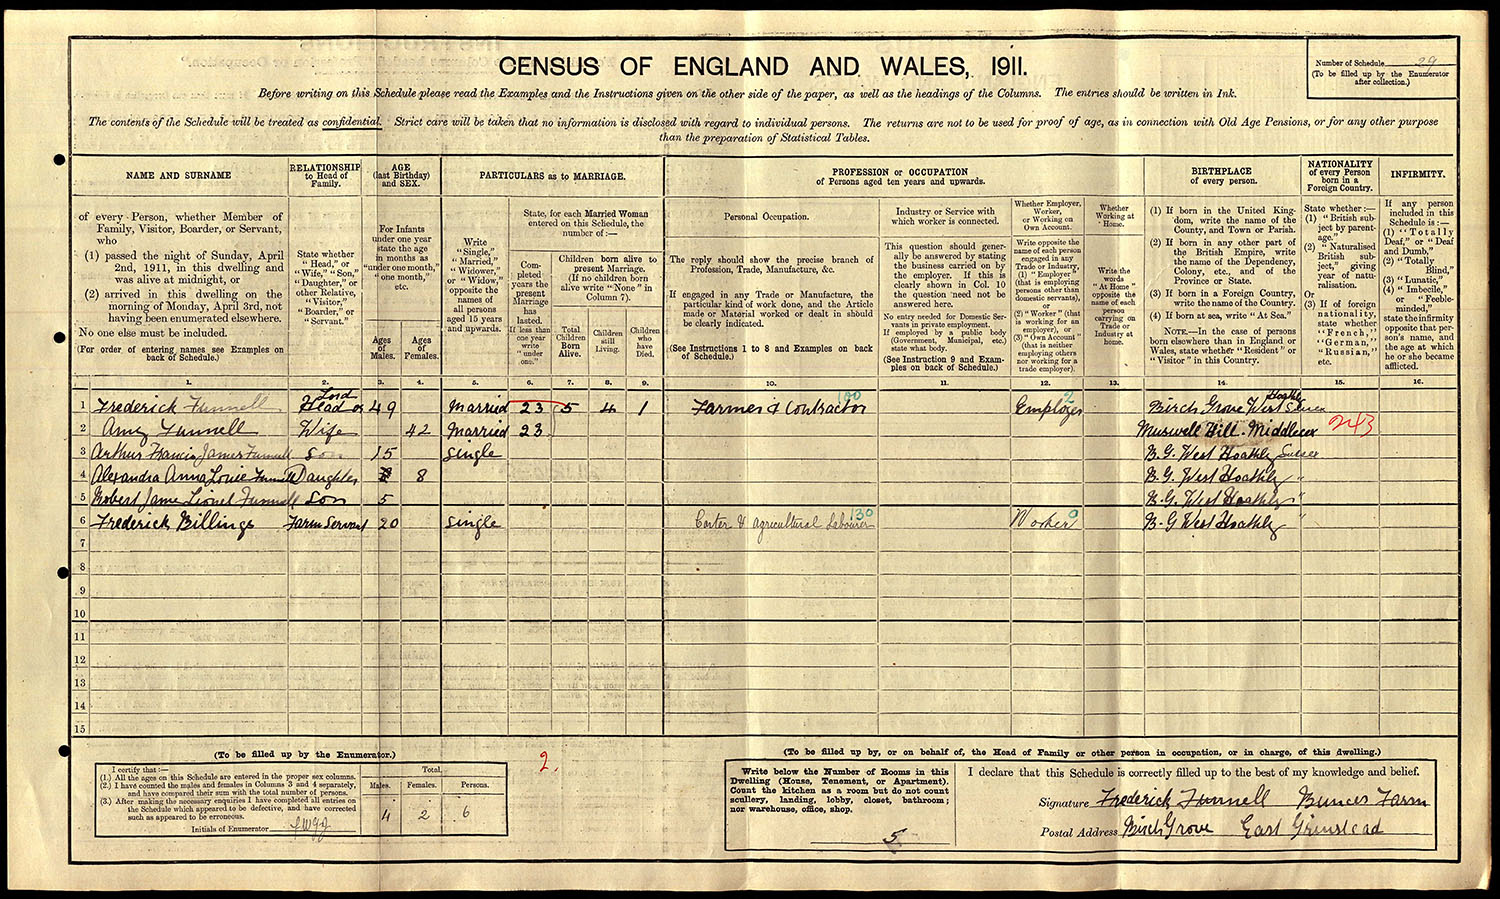 CENSUS OF ENGLAND AND WALES, 1911.
Number of Schedule 29
(To be filled up by the Enumerator
after collection.)
Before writing on this Schedule please read the Examples and the Instructions given on the other side of the paper, as well as the headings of the Columns. The entries should be written in Ink.
The contents of the Schedule will be treated as confidential. Strict care will be taken that no information is disclosed with regard to individual persons. The returns are not to be used for proof of age, as in connection with Old Age Pensions, or for any other purpose
than the preparation of Statistical Tables.
NAME AND SURNAME
of every Person, whether Member of
Family, Visitor, Boarder, or Servant,
who
(1) passed the night of Sunday, April
2nd, 1911, in this dwelling and
was alive at midnight, or
(2) arrived in this dwelling on the
morning of Monday, April 3rd, not
having been enumerated elsewhere.
No one else must be included.
(For order of entering names see Examples on
back of Schedule.)
RELATIONSHIP
to Head of
Family.
State whether
"Head," or
"Wife," "Son,"
"Daughter," or
other Relative,
"Visitor,"
"Boarder," or
"Servant."
AGE
(last Birthday)
and SEX.
For Infants
under one year
state the age
in months as
"under one month,"
"one month,"
etc.
Ages
of
Males.
Ages
of
Females.
PARTICULARS as to MARRIAGE.
Write
"Single,"
"Married,"
"Widower,"
or "Widow,"
opposite the
names of
all persons
aged 15 years
and upwards.
State, for each Married Woman
entered on this Schedule, the
number of:—
Com-
pleted
years the
present
Marriage
has
lasted.
If less than
one year
write
"under
one."
Children born alive to
present Marriage.
(If no children born
alive write "None" in
Column 7).
Total
Children
Born
Alive.
Children
still
Living.
Children
who
have
Died.
PROFESSION or OCCUPATION
of Persons aged ten years and upwards.
Personal Occupation.
The reply should show the precise branch of
Profession, Trade, Manufacture, &c.
If engaged in any Trade or Manufacture, the
particular kind of work done, and the Article
made or Material worked or dealt in should
be clearly indicated.
(See Instructions 1 to 8 and Examples on back
of Schedule.)
Industry or Service with
which worker is connected.
This question should gener-
ally be answered by stating
the business carried on by
the employer. If this is
clearly shown in Col. 10
the question need not be
answered here.
No entry needed for Domestic Ser-
vants in private employment.
If employed by a public body
(Government, Municipal, etc.)
state what body.
(See Instruction 9 and Exam-
ples on back of Schedule.)
Whether Employer,
Worker,
or Working on
Own Account.
Write opposite the
name of each person
engaged in any
Trade or Industry,
(1) "Employer"
(that is employing
persons other than
domestic servants),
or
(2) "Worker" (that
is working for an
employer), or
(3) "Own Account"
(that is neither
employing others
nor working for a
trade employer).
Whether
Working at
Home.
Write the
words
"At Home"
opposite the
name of each
person
carrying on
Trade or
Industry at
home.
BIRTHPLACE
of every person.
(1) If born in the United King-
dom, write the name of the
County, and Town or Parish.
(2) If born in any other part of
the British Empire, write
the name of the Dependency,
Colony, etc., and of the
Province or State.
(3) If born in a Foreign Country,
write the name of the Country.
(4) If born at sea, write "At Sea."
NOTE.—In the case of persons
born elsewhere than in England or
Wales, state whether "Resident" or
"Visitor" in this Country.
NATIONALITY
of every Person
born in a
Foreign Country.
State whether:—
(1) "British sub-
ject by parent-
age."
(2) "Naturalised
British sub-
ject," giving
year of natu-
ralisation.
Or
(3) If of foreign
nationality,
state whether
"French,"
"German,"
"Russian,"
etc.
INFIRMITY.
If any person
included in this
Schedule is:—
(1) "Totally
Deaf," or "Deaf
and Dumb,"
(2) "Totally
Blind,"
(3) "Lunatic,"
(4) "Imbecile,"
or "Feeble-
minded,"
state the infirmity
opposite that per-
son's name, and
the age at which
he or she became
afflicted.
1. 2. 3. 4. 5. 6. 7. 8. 9. 10. 11. 12. 13. 14. 15. 16.
1 Frederick Funnell Head or Lord 49 Married 23 5 4 1 Farmer & Contractor Employer 2 Birch Grove West Hoathly Sussex
2 Amy Funnell Wife 42 Married 23 Muswell Hill. Middlesex 243
3 Arthur Francis James Funnell Son 15 Single B.G. West Hoathly Sussex
4 Alexandra Anna Louie Funnell Daughter 8 B.G. West Hoathly "
5 Robert James Lionel Funnell Son 5 B.G. West Hoathly "
6 Frederick Billings Farm Servant 20 Single Carter & Agricultural Labourer 130 Worker 0 B.G West Hoathly "
7
8
9
10
11
12
13
14
15
(To be filled up by the Enumerator.)
I certify that:—
(1.) All the ages on this Schedule are entered in the proper sex columns.
(2.) I have counted the males and females in Columns 3 and 4 separately,
and have compared their sum with the total number of persons.
(3.) After making the necessary enquiries I have completed all entries on
the Schedule which appeared to be defective, and have corrected
such as appeared to be erroneous.
Initials of Enumerator
Total.
Males. Females. Persons.
4 2 6
2.
(To be filled up by, or on behalf of, the Head of Family or other person in occupation, or in charge, of this dwelling.)
Write below the Number of Rooms in this
Dwelling (House, Tenement, or Apartment).
Count the kitchen as a room but do not count
scullery, landing, lobby, closet, bathroom;
nor warehouse, office, shop.
5
I declare that this Schedule is correctly filled up to the best of my knowledge and belief.
Signature Frederick Funnell Bunces Farm
Postal Address Birch Grove East Grinstead